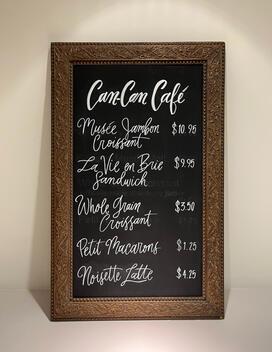 Can-Can Café
Musée Jambon $10.95
Croissant
La Vie en Brie $9.95
Sandwich
Whole Grain $3.50
Croissant
Petit Macarons $1.25
Noisette Latte $4.25